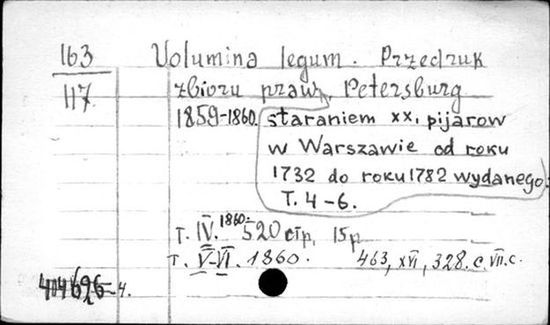 163 Volumina legum. Przedruk
117 zbioru praw, Petersburg
1859-1860. staraniem xx. pijarow
w Warszawie od roku
1732 do roku 1782 wydanego.
T. 4-6.
т. IV. 1860. 520 стр, 15 р.
т. V-VI. 1860. 463, XVI, 328. с. VII. с.